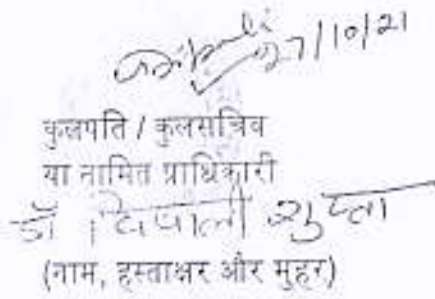 27/10/21
कुलपति / कुलसचिव
या नामित प्राधिकारी
डॉ दिपाली गुप्ता
(नाम, हस्ताक्षर और मुहर)